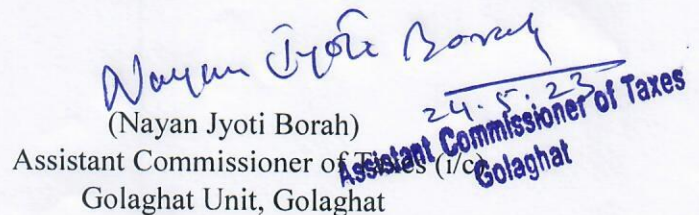 Nayan Jyoti Borah
24.5.23
(Nayan Jyoti Borah)
Assistant Commissioner of Taxes (i/c)
Golaghat Unit, Golaghat
Assistant Commissioner of Taxes
Golaghat